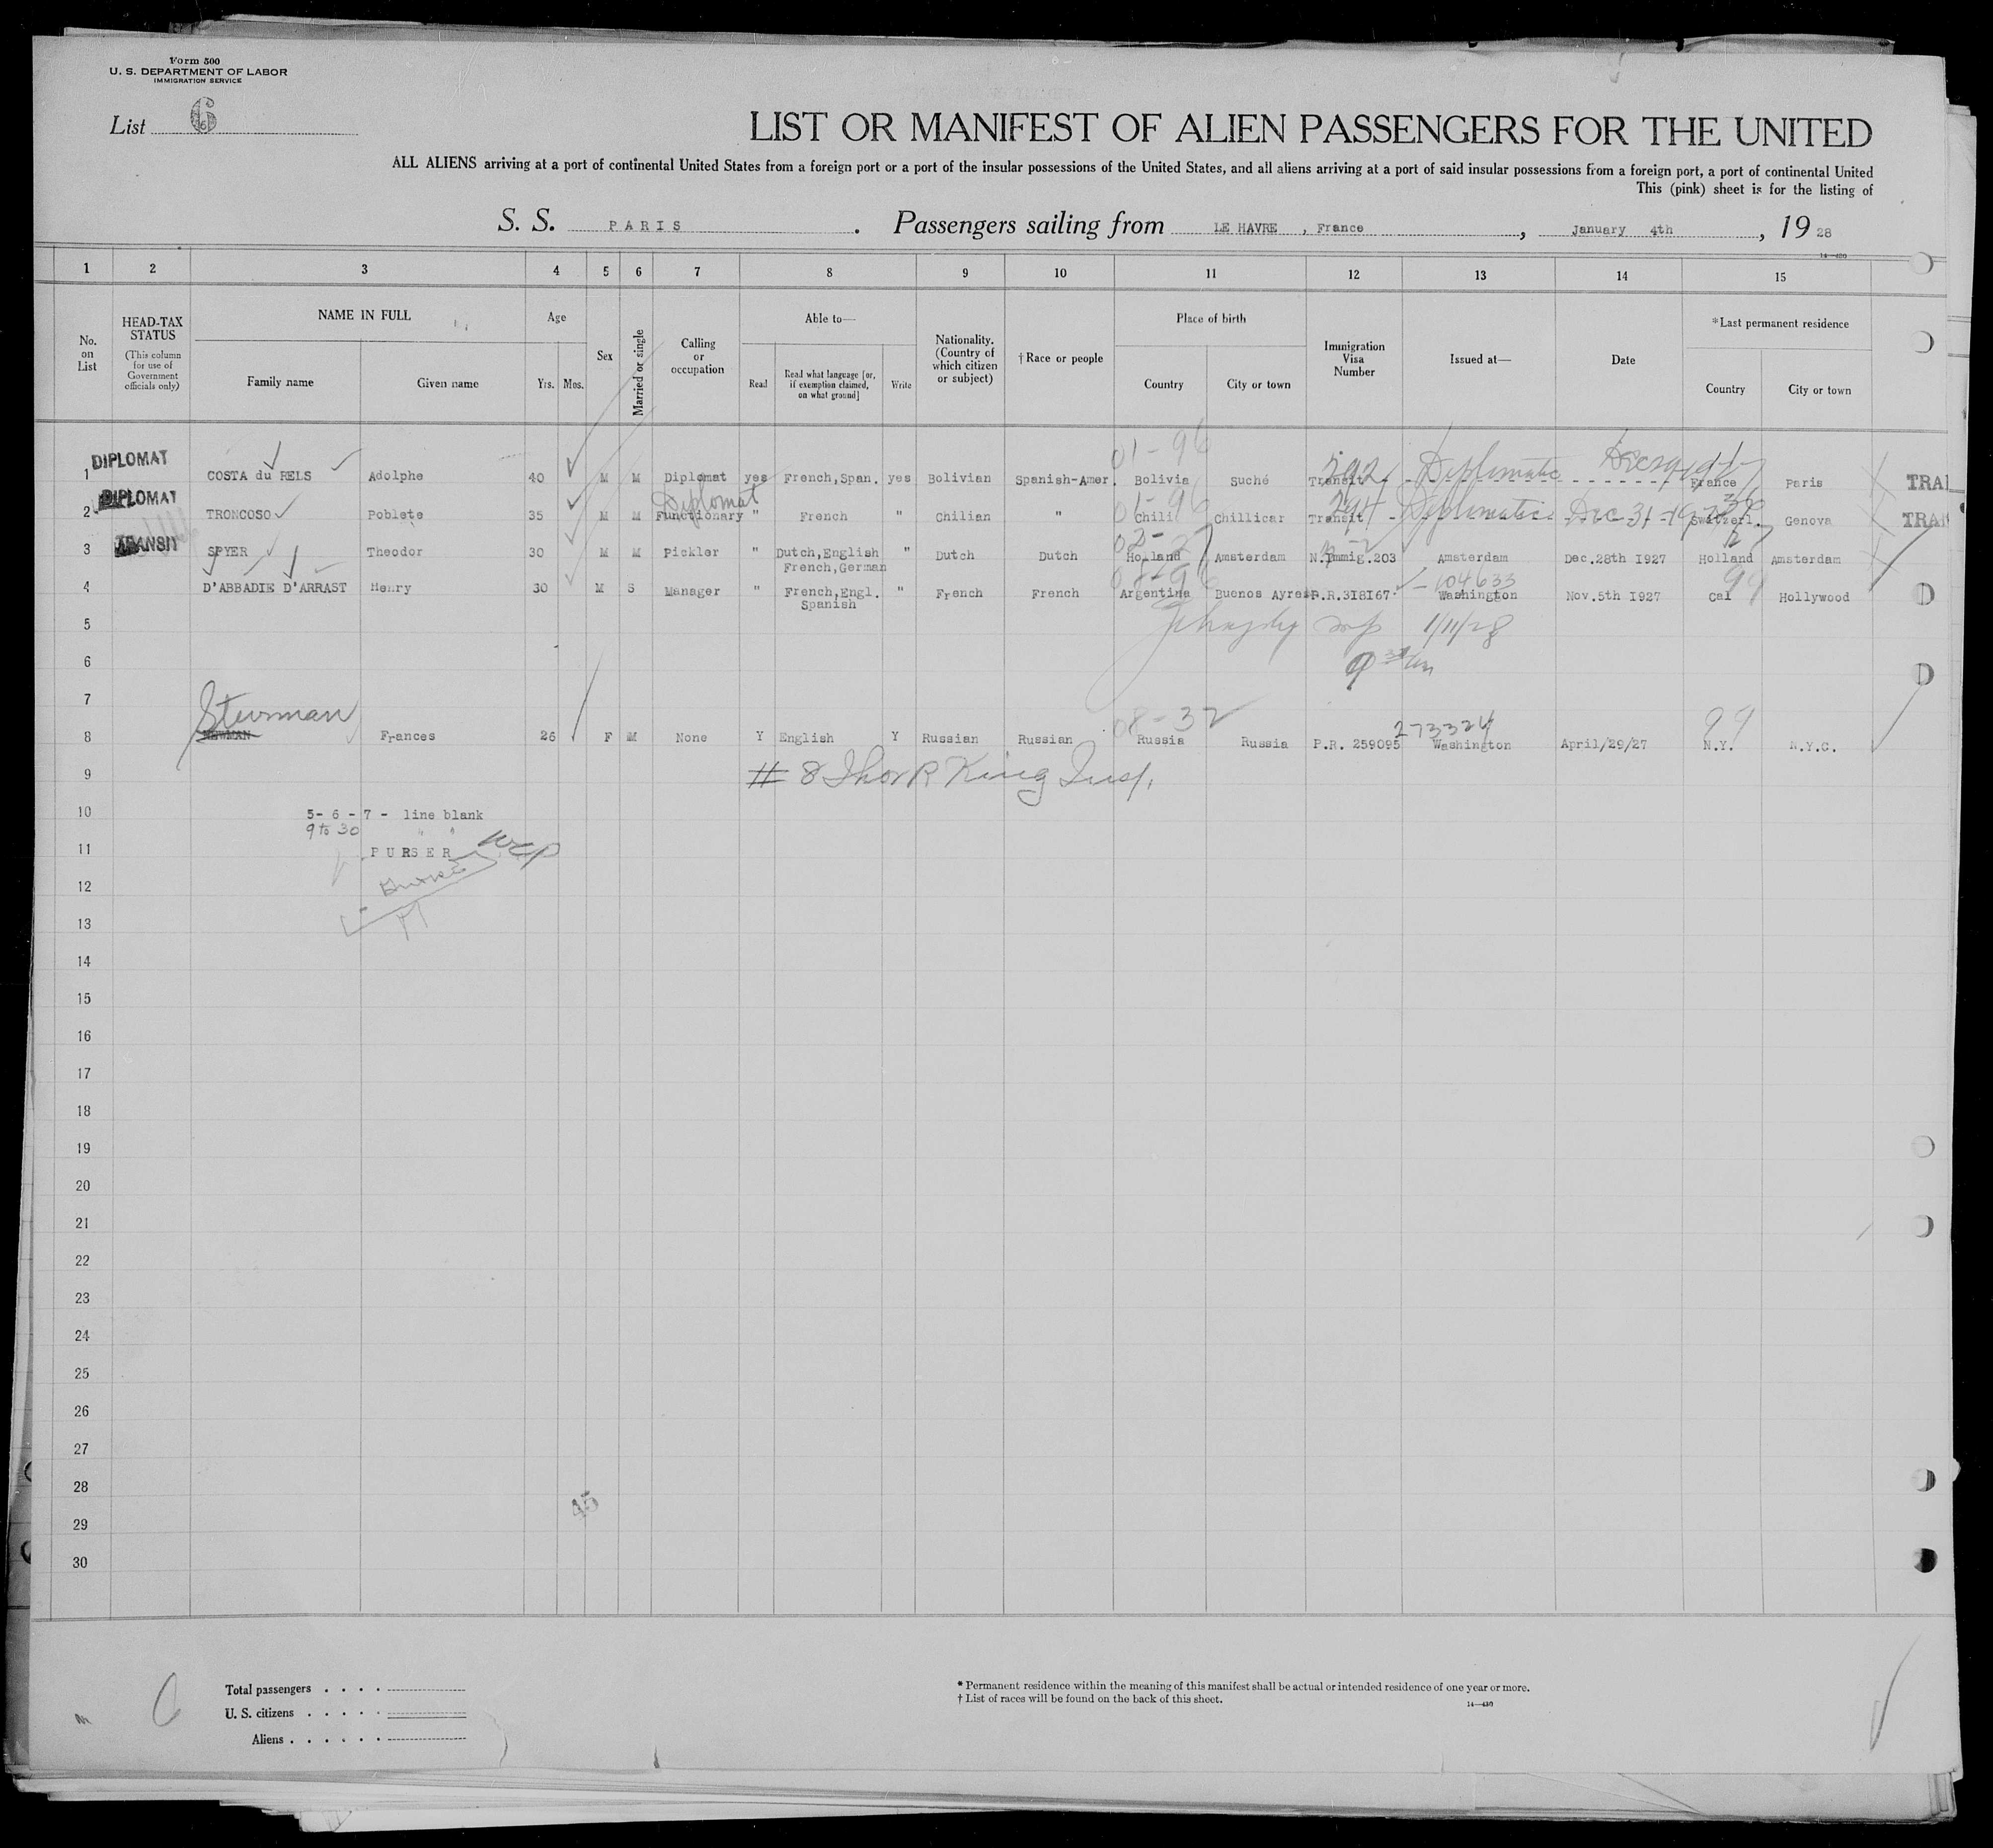 Form 500
U. S. DEPARTMENT OF LABOR
IMMIGRATION SERVICE
List 6
LIST OR MANIFEST OF ALIEN PASSENGERS FOR THE UNITED
ALL ALIENS arriving at a port of continental United States from a foreign port or a port of the insular possessions of the United States, and all aliens arriving at a port of said insular possessions from a foreign port, a port of continental United
This (pink) sheet is for the listing of
S. S. PARIS. Passengers sailing from LE HAVRE, France, January 4th, 1928
14—430
1 2 3 4 5 6 7 8 9 10 11 12 13 14 15
No. on List
HEAD-TAX STATUS (This column for use of Government officials only)
NAME IN FULL
Family name Given name
Age
Yrs. Mos.
Sex
Married or single
Calling or occupation
Able to—
Read
Read what language [or, if exemption claimed, on what ground]
Write
Nationality. (Country of which citizen or subject)
†Race or people
Place of birth
Country City or town
Immigration Visa Number
Issued at—
Date
*Last permanent residence
Country City or town
01-96
1 DIPLOMAT COSTA du RELS Adolphe 40 M M Diplomat yes French,Span. yes Bolivian Spanish-Amer. Bolivia Suché Transit 292 Diplomatic France Paris TRA
Diplomat 01-96
2 DIPLOMAT TRONCOSO Poblete 35 M M Functionary " French " Chilian " Chili Chillicar Transit 294 Diplomatic Dec-31-1927 Switzerl. Genova TRA
3 TRANSIT SPYER Theodor 30 M M Pickler " Dutch,English French,German " Dutch Dutch Holland Amsterdam N.Immig.203 Amsterdam Dec.28th 1927 Holland Amsterdam
104633 99
4 D'ABBADIE D'ARRAST Henry 30 M S Manager " French,Engl. Spanish " French French Argentina Buenos Ayres P.R.318167 Washington Nov.5th 1927 Cal Hollywood
5 1/11/28
6
7
Sturman 08-32 273324 99
8 NEWMAN Frances 26 F M None Y English Y Russian Russian Russia Russia P.R. 259095 Washington April/29/27 N.Y. N.Y.C.
9 # 8 Thos R King Insp.
10 5- 6 - 7 - line blank
9 to 30 " "
11 PURSER
12
13
14
15
16
17
18
19
20
21
22
23
24
25
26
27
28
45
29
30
6
Total passengers . . . .
U. S. citizens . . . . .
Aliens . . . . . .
* Permanent residence within the meaning of this manifest shall be actual or intended residence of one year or more.
† List of races will be found on the back of this sheet.
14—430